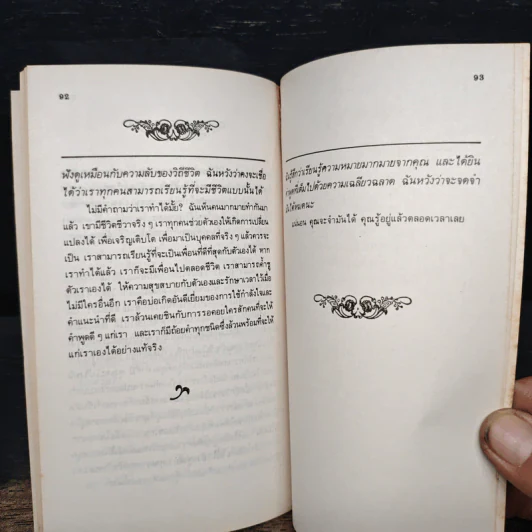 92
ฟังดูเหมือนกับความลับของวิถีชีวิต ฉันหวังว่าคงจะเชื่อ
ได้ว่าเราทุกคนสามารถเรียนรู้ที่จะมีชีวิตแบบนั้นได้
ไม่มีคำถามว่าเราทำได้มั้ย? ฉันเห็นคนมากมายทำกันมา
แล้ว เขามีชีวิตชีวาจริง ๆ เราทุกคนช่วยตัวเองให้เกิดการเปลี่ยน
แปลงได้ เพื่อเจริญเติบโต เพื่อมาเป็นบุคคลที่จริง ๆ แล้วควรจะ
เป็น เราสามารถเรียนรู้ที่จะเป็นเพื่อนที่ดีที่สุดกับตัวเองได้ หาก
เราทำได้แล้ว เราก็จะมีเพื่อนไปตลอดชีวิต เราสามารถค้ำชู
ตัวเราเองได้ ให้ความสุขสบายกับตัวเองและรักษาเวลาไว้เมื่อ
ไม่มีใครอื่นอีก เราคือบ่อเกิดอันดีเยี่ยมของการใช้กำลังใจและ
คำแนะนำที่ดี เราล้วนเคยชินกับการรอคอยใครสักคนที่จะให้
คำพูดดี ๆ แก่เรา และเราก็มีถ้อยคำทุกชนิดซึ่งล้วนพร้อมที่จะให้
แก่เราเองได้อย่างแท้จริง
93
รู้สึกว่าเรียนรู้ความหมายมากมายจากคุณ และได้ยิน
เต็มไปด้วยความเฉลียวฉลาด ฉันหวังว่าจะจดจำ
ได้หมดนะ
แน่นอน คุณจะจำมันได้ คุณรู้อยู่แล้วตลอดเวลาเลย